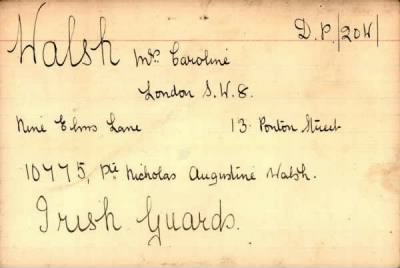 D.P. /20W/
Walsh Mrs. Caroline
London S.W.8.
Nine Elms Lane 13 Ponton Street
10775, Pte Nicholas Augustine Walsh.
Irish Guards.